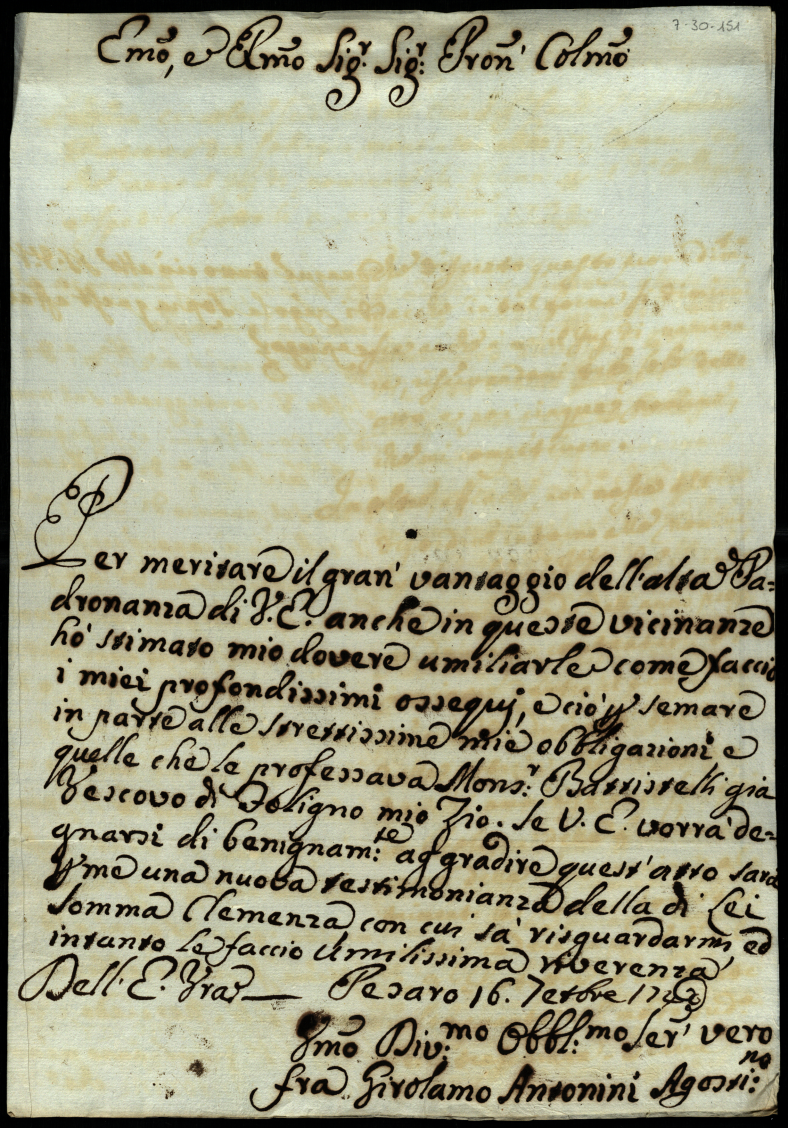 7-30-151
Emõ, e Rmõ Sig.r Sig.r Pron' Colmõ
Per meritare il gran' vantaggio dell'alta Pa=
dronanza di V. E. anche in queste vicinanze
hò stimato mio dovere umiliarle come faccio
i miei profondissimi ossequj, e ciò p semare
in parte alle strettissime mie obbligazioni e
quelle che le professava Mons.r Battistelli già
Vescovo di Foligno mio Zio. Se V. E. vorrà de=
gnarsi di benignam:te aggradire quest'atto sarà
p me una nuova testimonianza della di Lei
somma Clemenza con cui sà risguardarmi, ed
intanto Le faccio umilissima riverenza
Dell'E. Vra Pesaro 16. 7etbre
Ummõ Div:mo Obbl:mo Ser' vero
fra Girolamo Antonini Agosti:no